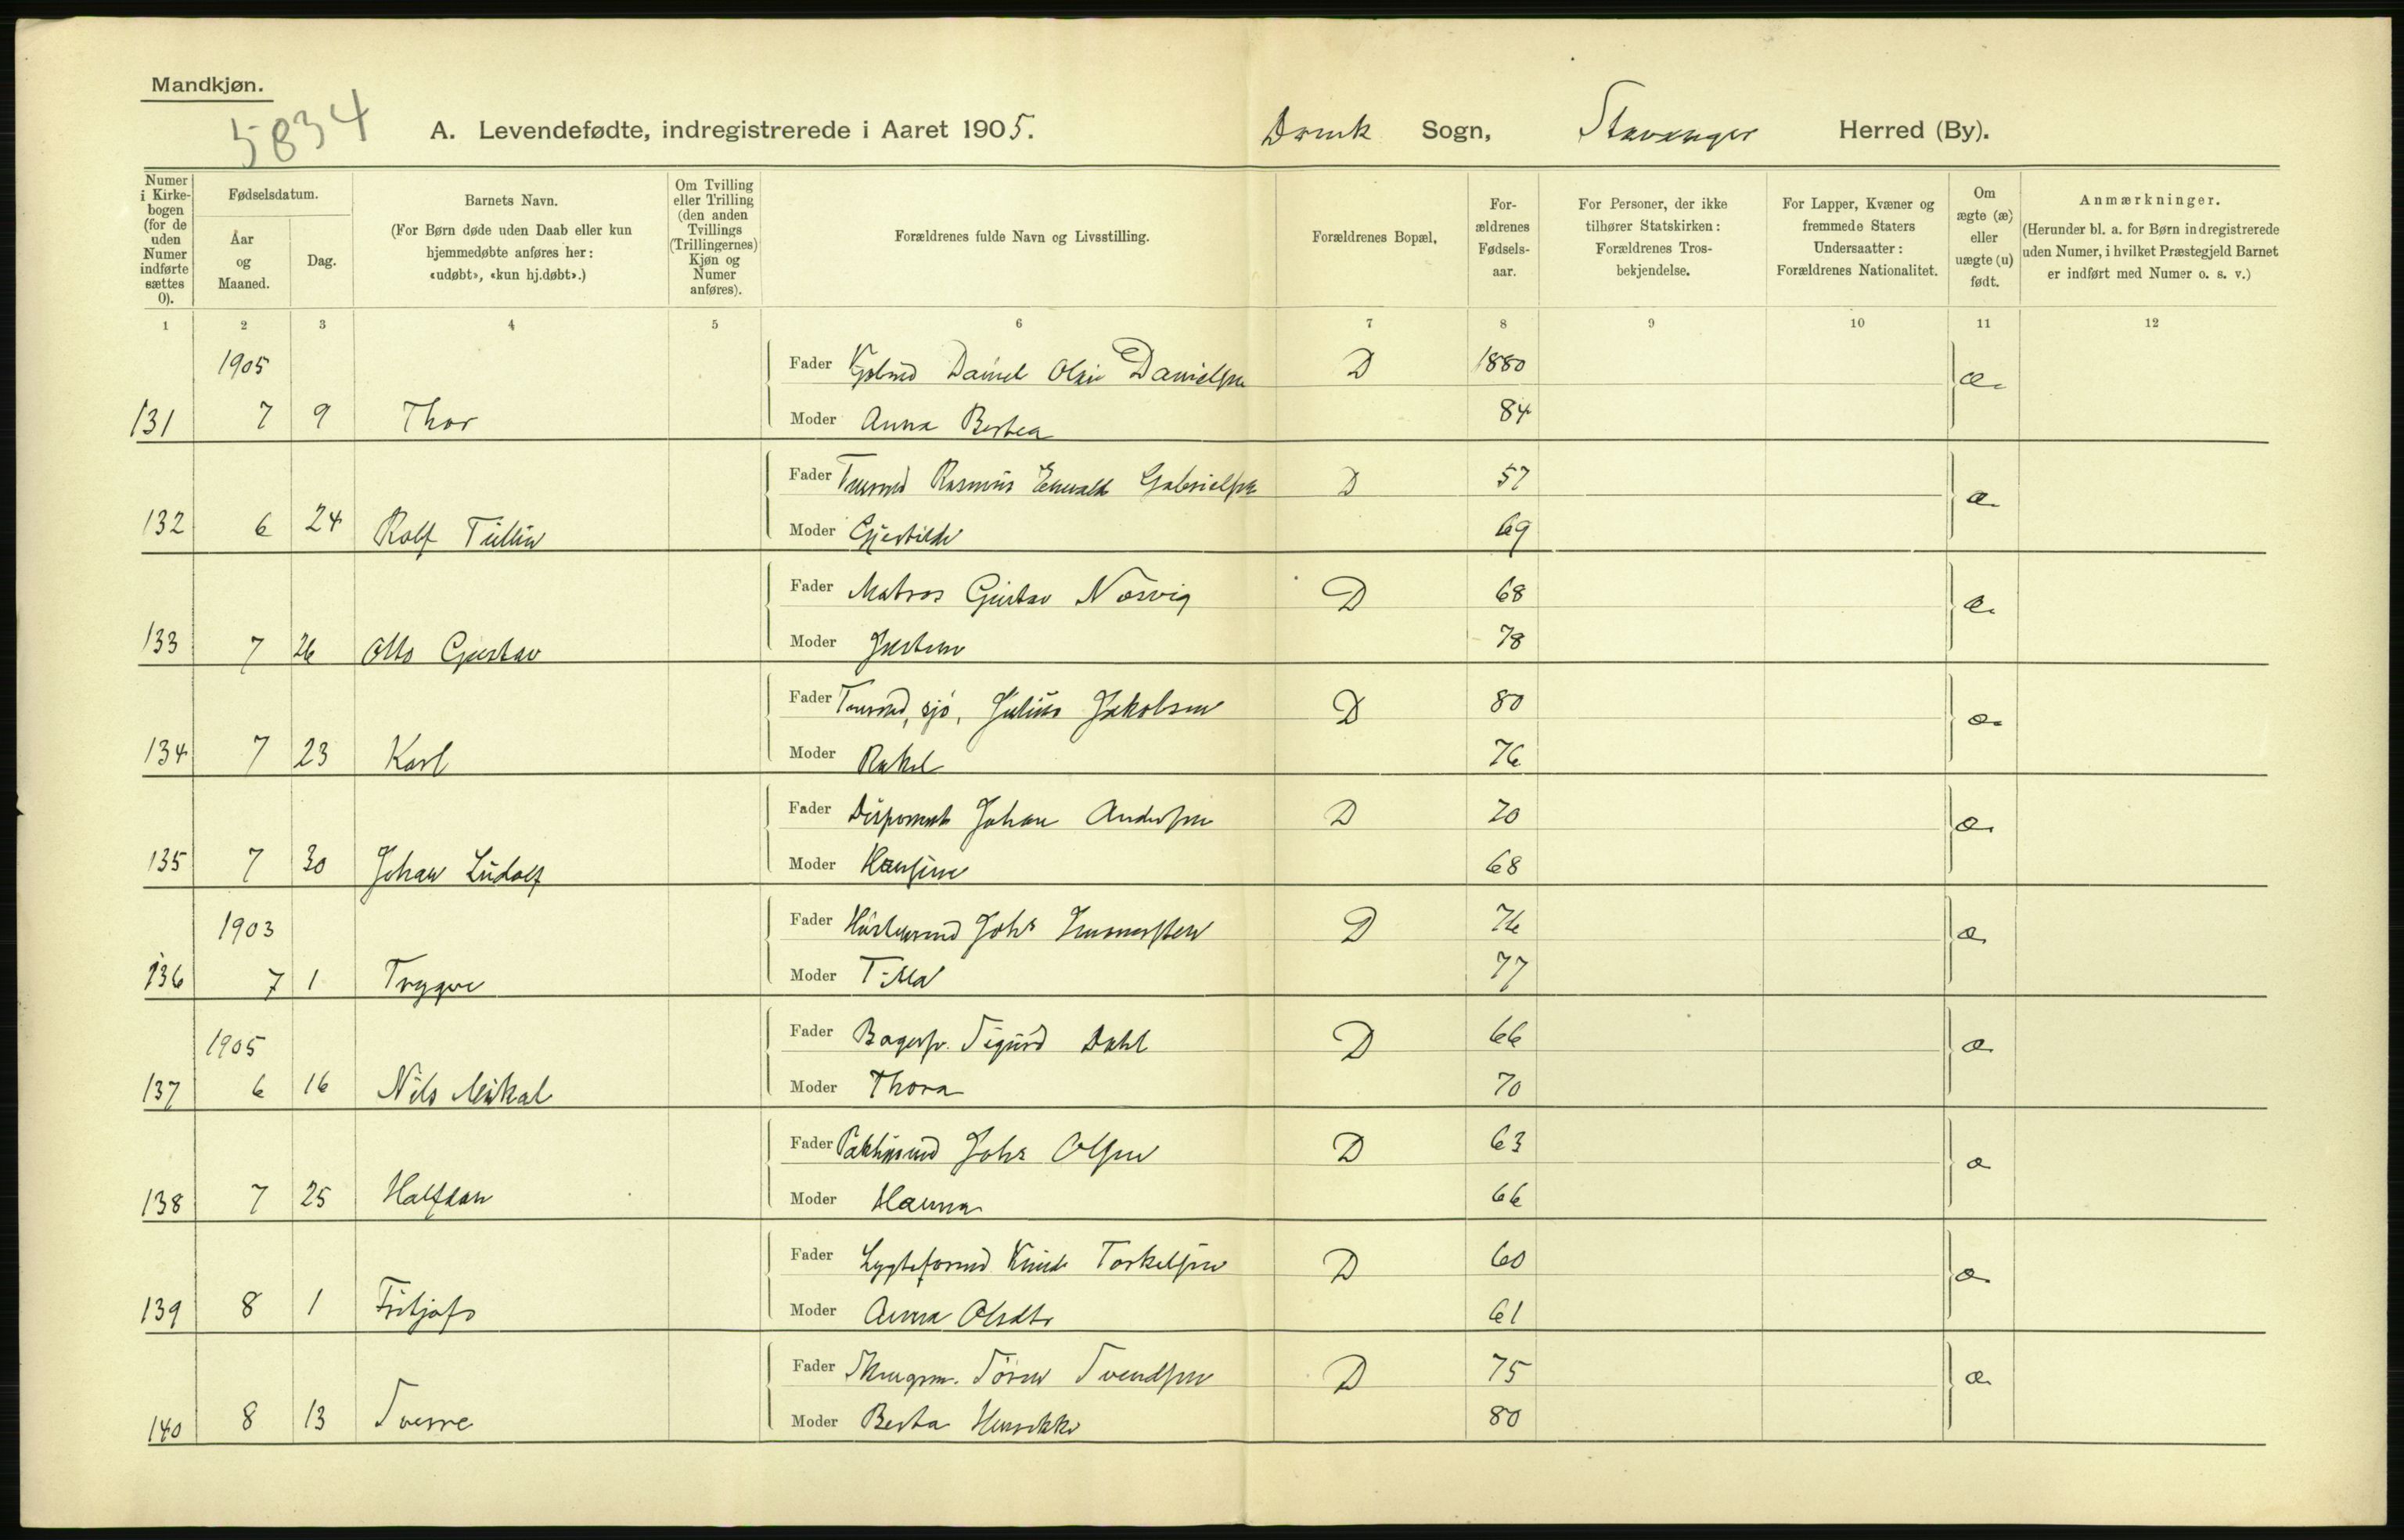 Mandkjøn.
5834
A. Levendefødte, indregistrerede i Aaret 1905. Domk Sogn, Stavanger Herred (By).
Numer i Kirkebogen (for de uden Numer indførte sættes 0).
Fødselsdatum.
Aar og Maaned.
Dag.
Barnets Navn.
(For Børn døde uden Daab eller kun
hjemmedøbte anføres her:
«udøbt», «kun hj.døbt».)
Om Tvilling
eller Trilling
(den anden
Tvillings
(Trillingernes)
Kjøn og
Numer
anføres).
Forældrenes fulde Navn og Livsstilling.
Forældrenes Bopæl.
For-
ældrenes
Fødsels-
aar.
For Personer, der ikke
tilhører Statskirken:
Forældrenes Tros-
bekjendelse.
For Lapper, Kvæner og
fremmede Staters
Undersaatter:
Forældrenes Nationalitet.
Om
ægte (æ)
eller
uægte (u)
født.
Anmærkninger.
(Herunder bl. a. for Børn indregistrerede
uden Numer, i hvilket Præstegjeld Barnet
er indført med Numer o. s. v.)
1 2 3 4 5 6 7 8 9 10 11 12
1905 Fader Daniel Olai Danielsen D 1880 æ.
131 7 9 Thor Moder Anna Bertea 84
Fader Rasmus Enevald Gabrielsen D 57 æ.
132 6 24 Rolf Tullin Moder Gjertilde 69
Fader Matros Gustav Norvig D 68 æ.
133 7 26 Otto Gustav Moder Justine 78
Fader sjø, Julius Jakobsen D 80 æ.
134 7 23 Karl Moder Rakel 76
Fader Disponent Johan Andersen D 70 æ.
135 7 30 Johan Ludolf Moder Hansine 68
1903 Fader Johs D 76 æ.
136 7 1 Trygve Moder Tilla 77
1905 Fader Bagersv. Sigurd Dahl D 66 æ.
137 6 16 Nils Mikal Moder Thora 70
Fader Pakhusmd Johs Olsen D 63 æ
138 7 25 Halfdan Moder Hanna 66
Fader Lygteformd Knud Torkelsen D 60 æ.
139 8 1 Fritjof Moder Anna Olsdtr 61
Fader Søren Svendsen D 75 æ.
140 8 13 Sverre Moder Berta Henrikke 80